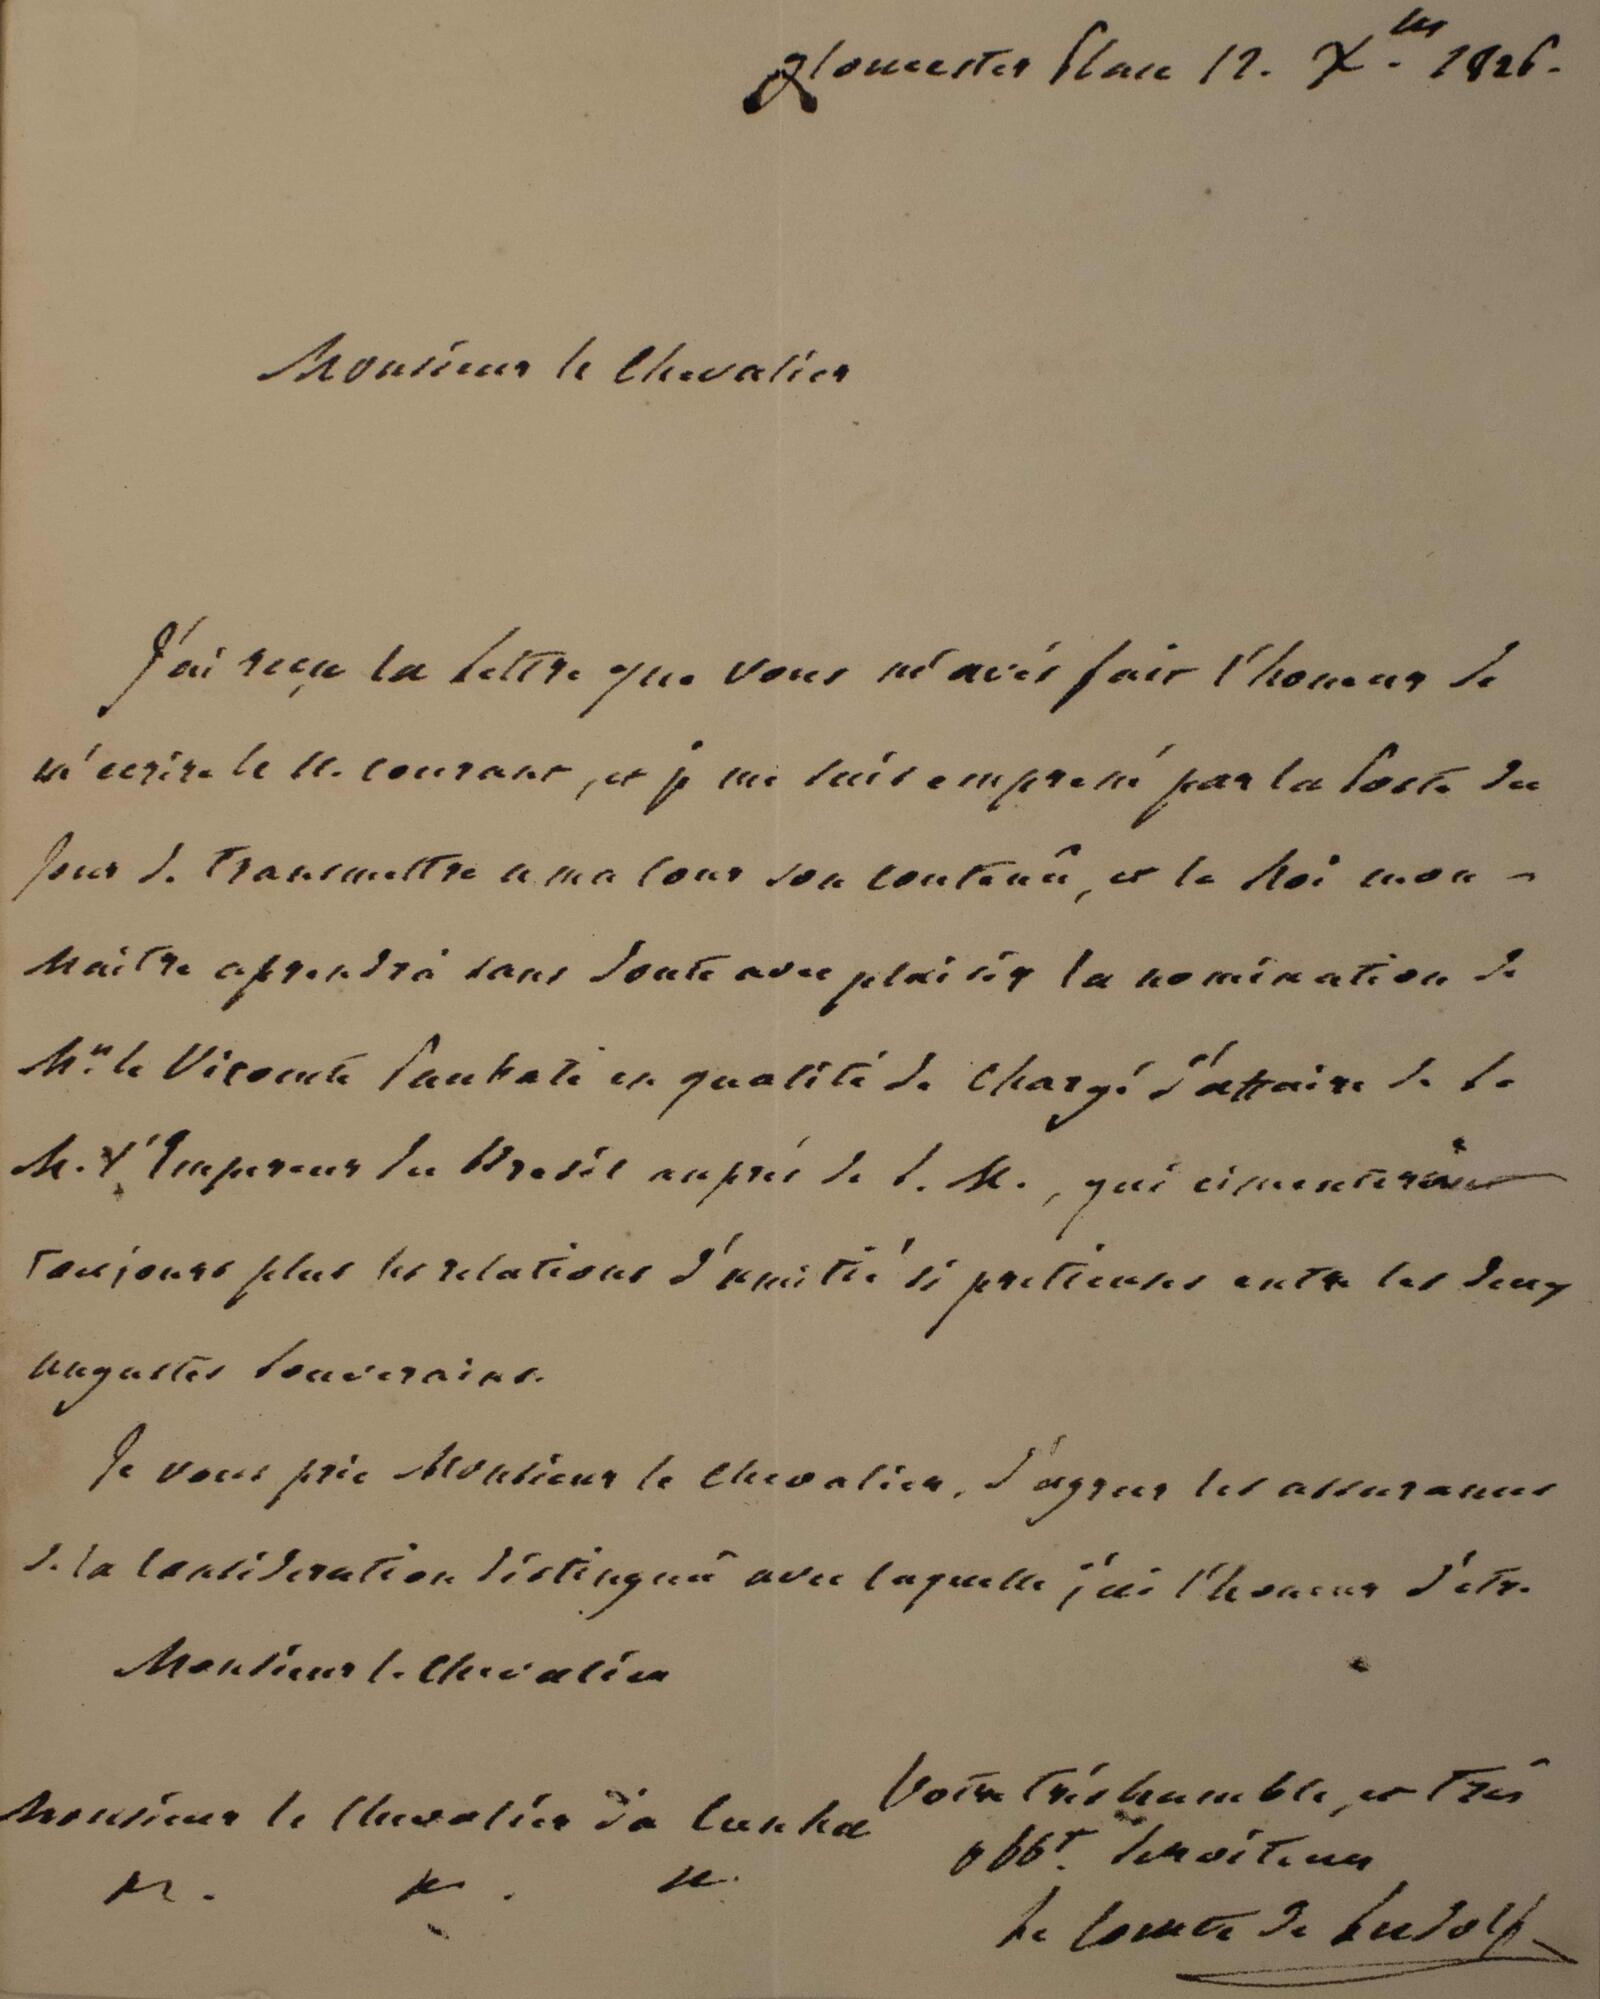 Gloucester Place 12. Xbre 1826.
Monsieur le Chevalier
J'ai reçu la lettre que vous m'avés fait l'honeur de
m'ecrire le 11. courant, et je me suis empressé par la Poste du
jour de transmettre a ma Cour son contenû, et le Roi mon
Maitre aprendrà sans doute avec plaisir la nomination de
Mr. le Vicomte en qualité de Chargé d'affaire de S.
M. l'Empereur du Bresil auprés de S. M., qui cimentera
toujours plus les relations d'amitié si pretieuses entre les deux
augustes Souverains.
Je vous prie Monsieur le Chevalier, d'agreer les assurances
de la Consideration distinguée avec laquelle j'ai l'honeur d'etre
Monsieur le Chevalier
Votre trés humble, et trés
obbt. Serviteur
Le Comte de Ludolf
Monsieur le Chevalier da Cunha